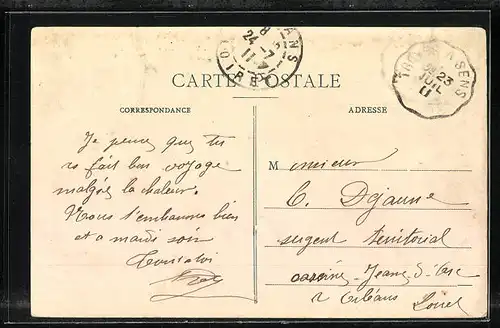 CARTE POSTALE
CORRESPONDANCE
ADRESSE
Je pense que tu
as fait bon voyage
malgré la chaleur.
Nous t'embrassons bien
et à mardi soir
M onsieur
C. Dejaune
sergent territorial
caserne Jeanne d'Arc
à Orléans Loiret
SENS
23
JUIL
11
24 -7
11
LOIRET